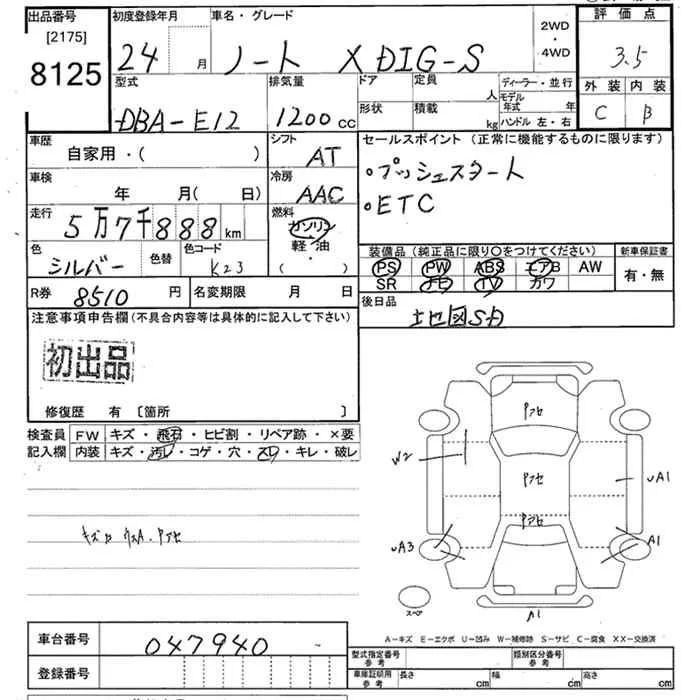 出品番号
[2175]
8125
初度登録年月
24 月
車名・グレード
ノート X DIG-S
2WD
・
4WD
評価点
3.5
外装 内装
C B
型式
DBA-E12
排気量
1200 cc
ドア
形状
定員 人
積載 kg
ディーラー・並行
モデル年式 年
ハンドル 左・右
車歴
自家用・( )
シフト
AT
セールスポイント(正常に機能するものに限ります)
・プッシュスタート
・ETC
車検
年 月( 日)
冷房
AAC
走行
5万7千888km
燃料
ガソリン
軽・油
( ・ )
色
シルバー
色替
色コード
K23
装備品(純正品に限り〇をつけてください)
PS PW ABS エアB AW
SR ナビ TV カワ
新車保証書
有・無
R券
8510 円
名変期限 月 日
後日品
地図SD
注意事項申告欄(不具合内容等は具体的に記入して下さい)
初出品
修復歴 有 [箇所 ]
検査員
記入欄
FW キズ・飛石・ヒビ割・リペア跡・×要
内装 キズ・汚レ・コゲ・穴・スレ・キレ・破レ
アセ
W2
アセ
UA1
アセ
UA3
A1
スペア
A1
A-キズ E-エクボ U-凹み W-補修跡 S-サビ C-腐食 XX-交換済
車台番号
047940
登録番号
型式指定番号
参考
類別区分番号
参考
車庫証明用
参考
長さ cm 幅 cm 高さ cm